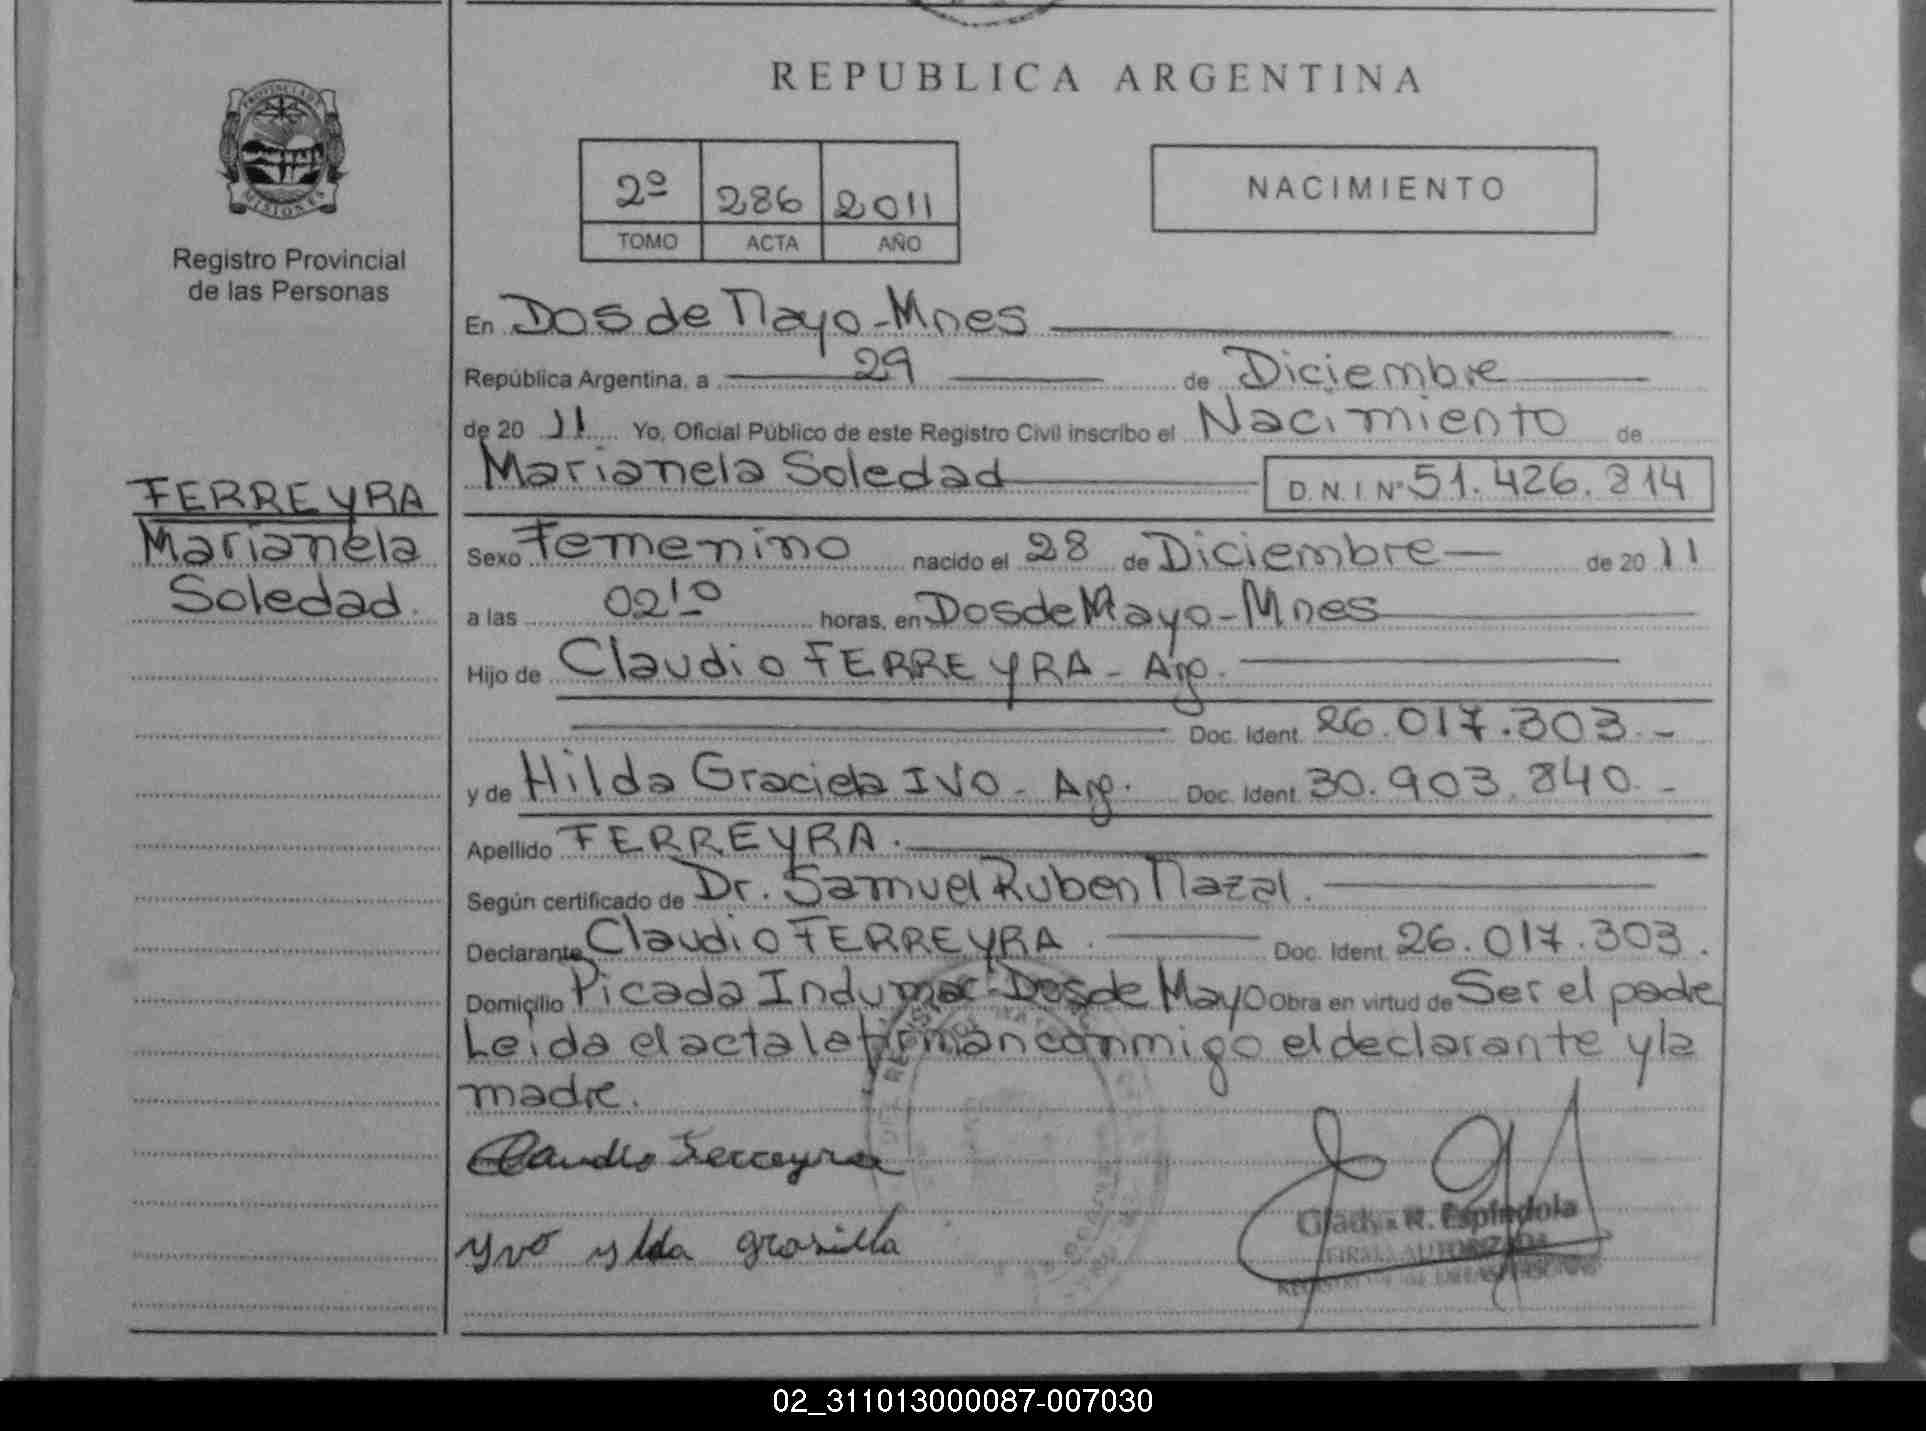 REPUBLICA ARGENTINA
PROVINCIA DE
MISIONES
Registro Provincial
de las Personas
2º 286 2011
TOMO ACTA AÑO
NACIMIENTO
En Dos de Mayo-Mnes
República Argentina, a 29 de Diciembre
de 20 11 Yo, Oficial Público de este Registro Civil inscribo el Nacimiento de
Marianela Soledad D.N.I Nº 51.426.814
FERREYRA
Marianela
Soledad.
Sexo Femenino nacido el 28 de Diciembre de 20 11
a las 02:10 horas, en Dos de Mayo-Mnes
Hijo de Claudio FERREYRA - Arg.
Doc. Ident. 26.017.303.-
y de Hilda Graciela IVO - Arg. Doc. Ident. 30.903.840.-
Apellido FERREYRA.
Según certificado de Dr. Samuel Ruben Mazal.
Declarante Claudio FERREYRA. Doc. Ident. 26.017.303.
Domicilio Picada Indumar-Dos de Mayo Obra en virtud de Ser el padre
Leida el acta la firman conmigo el declarante y la
madre.
Claudio Ferreyra
yvo ylda grasiella
Gladys R. Espindola
FIRMA AUTORIZADA
02_311013000087-007030